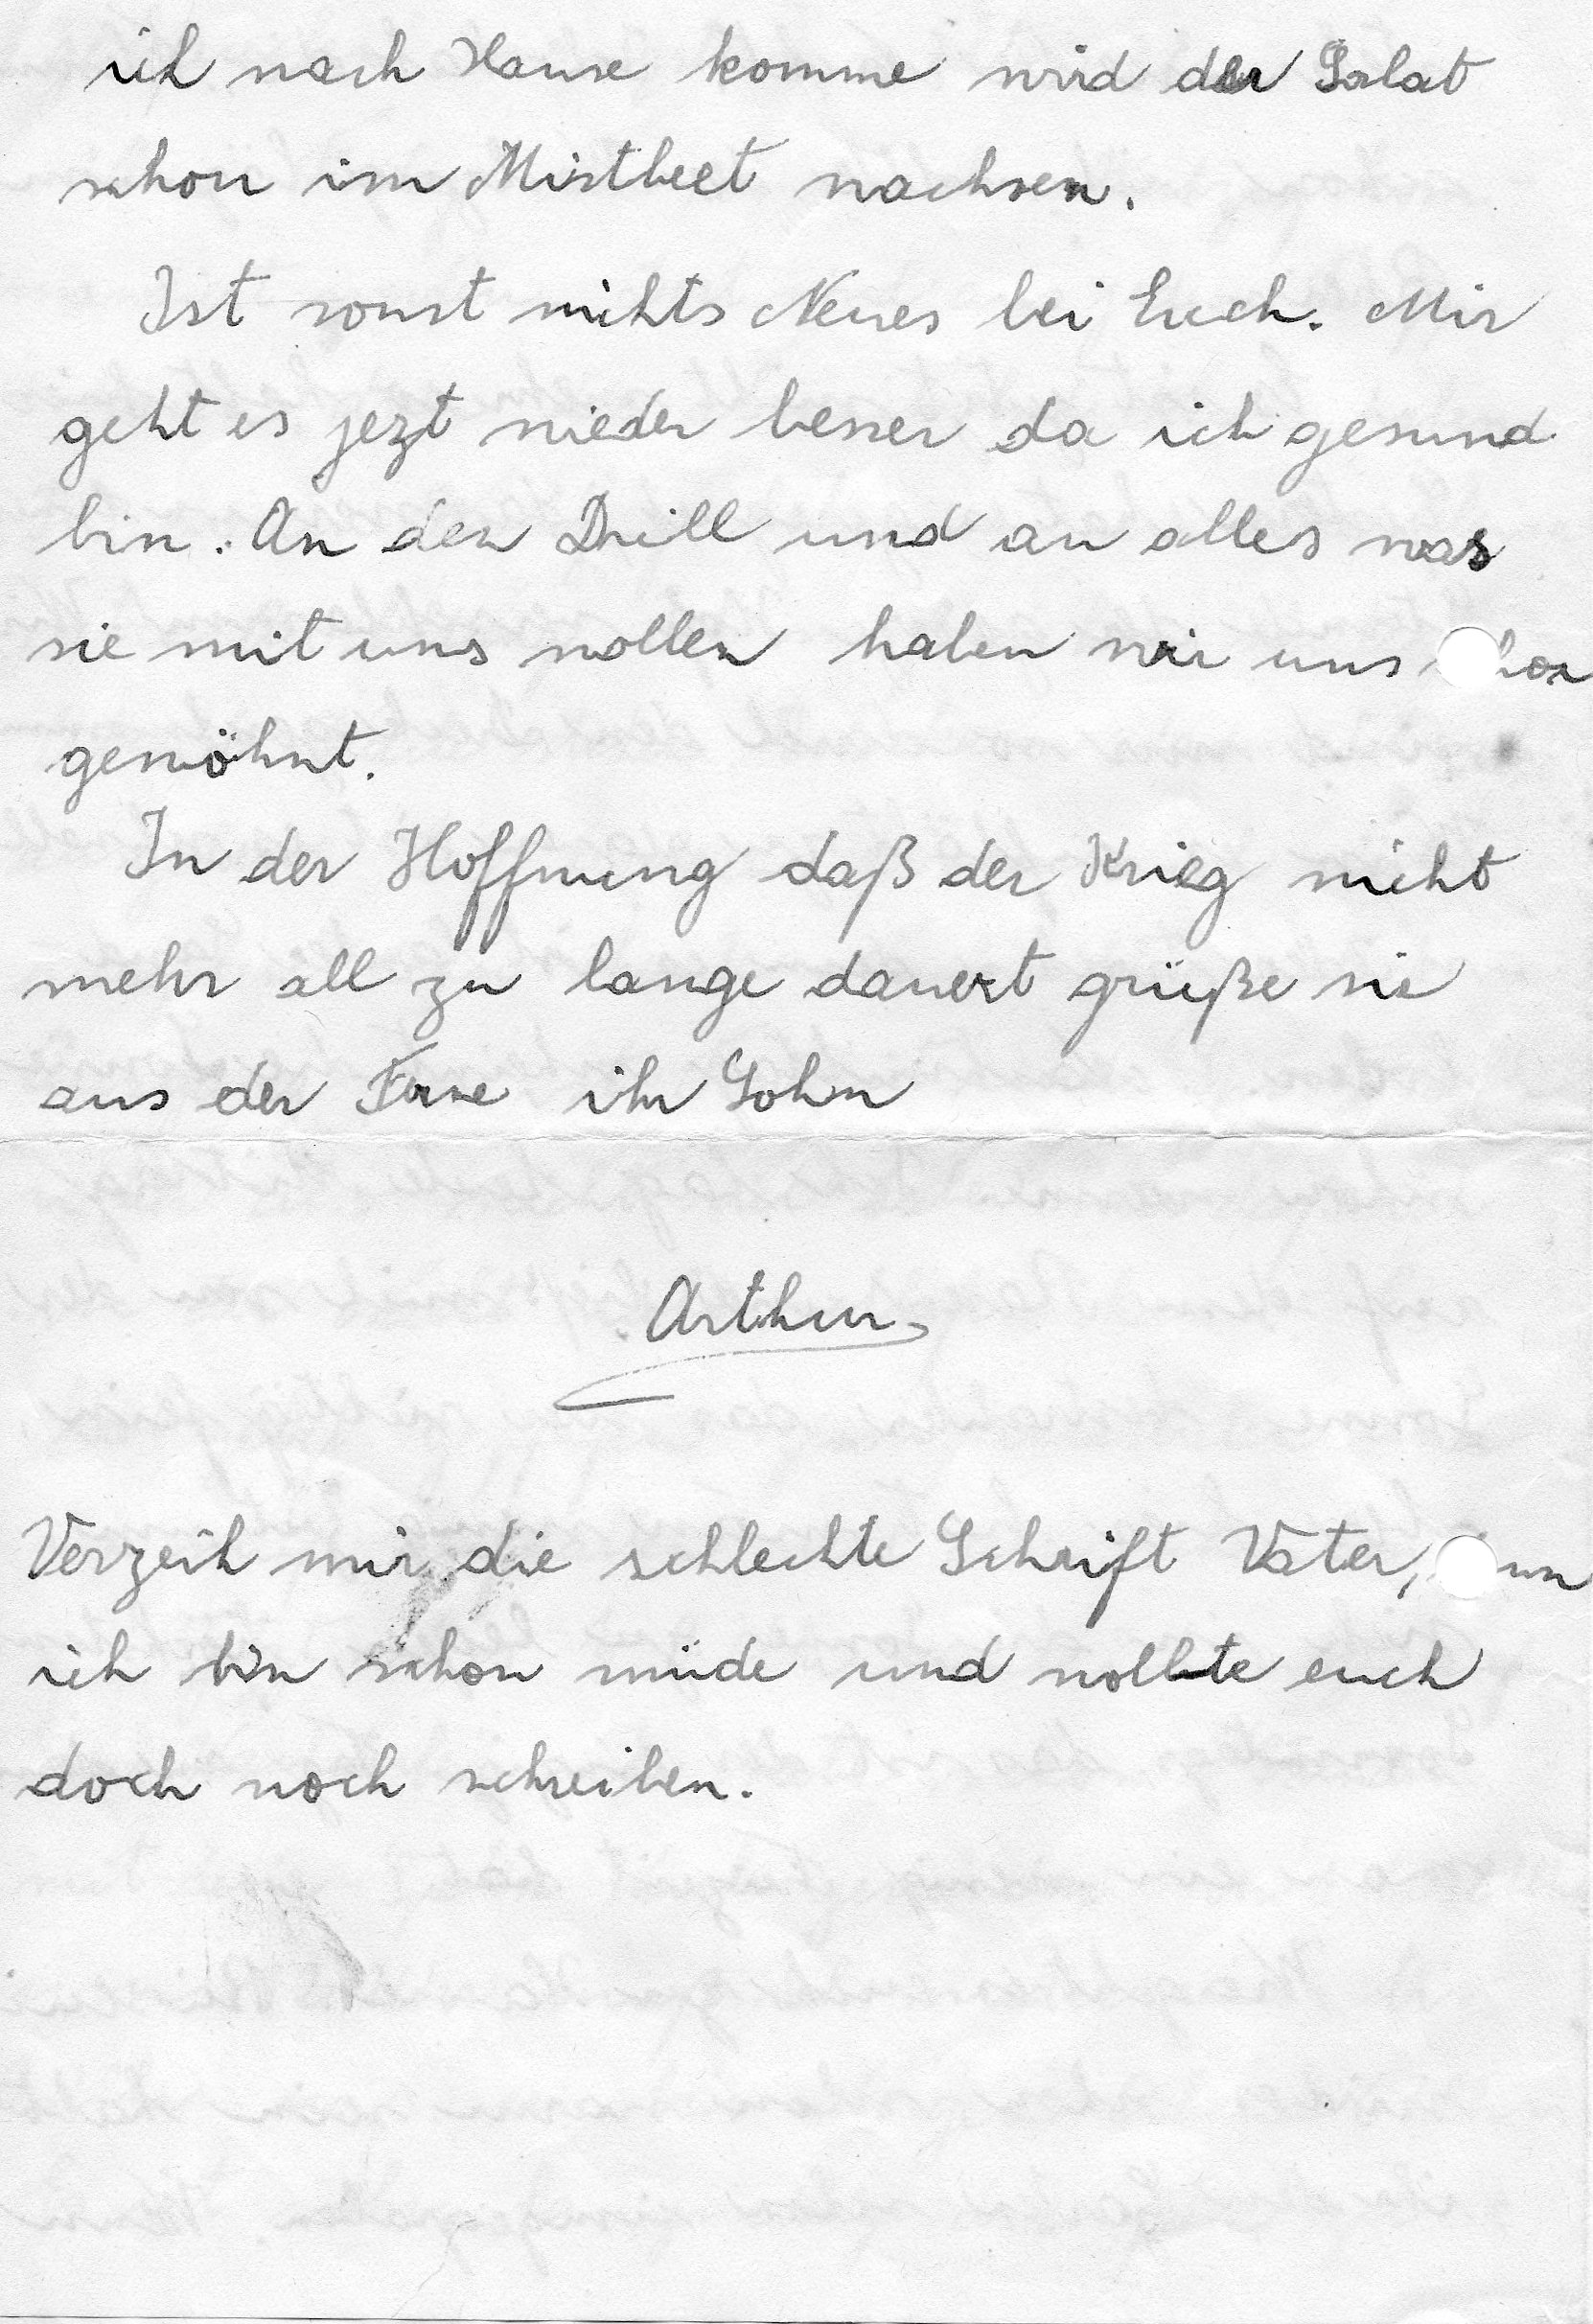 ich nach Hause komme wird der Salat
schon im Mistbeet wachsen.
Ist sonst nichts Neues bei Euch. Mir
geht es jezt wieder besser da ich gesund
bin. An den Drill und an alles was
sie mit uns wollen haben wir uns schon
gewöhnt.
In der Hoffnung daß der Krieg nicht
mehr all zu lange dauert grüße sie
aus der Ferne ihr Sohn
Arthur
Verzeih mir die schlechte Schrift Vater, denn
ich bin schon müde und wollte euch
doch noch schreiben.